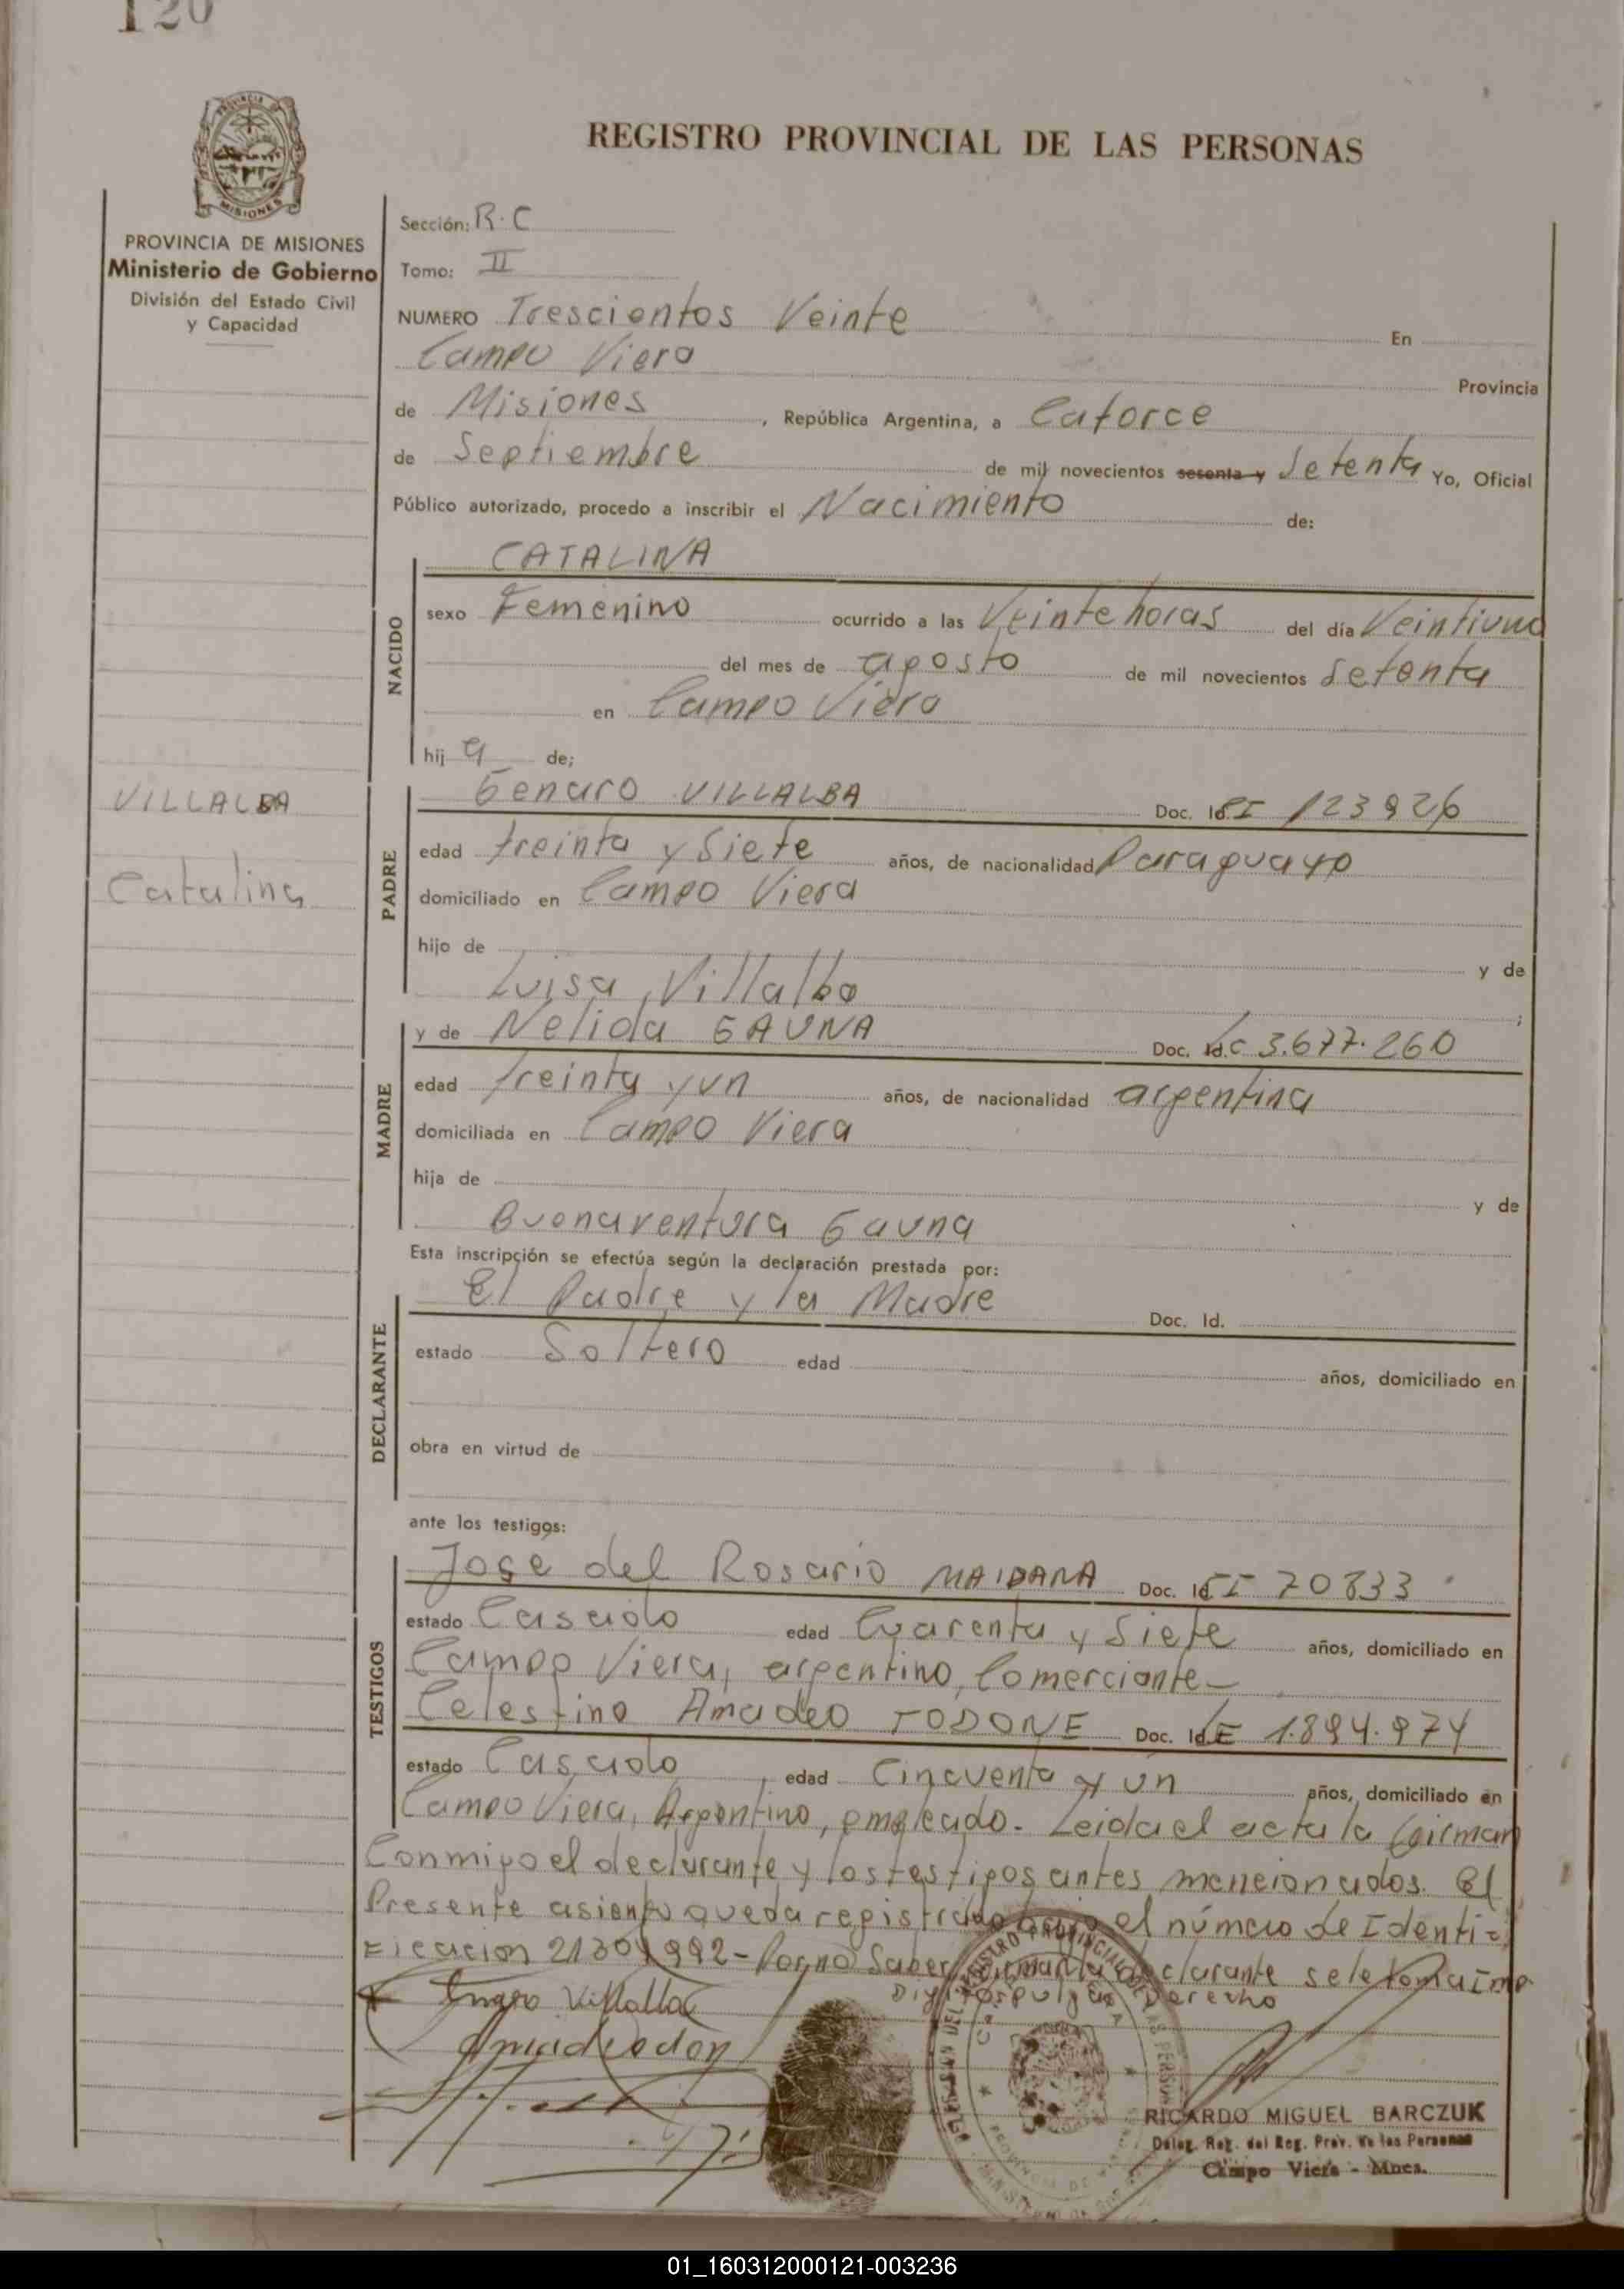 120
REGISTRO PROVINCIAL DE LAS PERSONAS
PROVINCIA DE MISIONES
Ministerio de Gobierno
División del Estado Civil
y Capacidad
Sección: R.C
Tomo: II
NUMERO Trescientos Veinte En
Campo Viera Provincia
de Misiones, República Argentina, a Catorce
de Septiembre de mil novecientos sesenta y Setenta Yo, Oficial
Público autorizado, procedo a inscribir el Nacimiento de:
CATALINA
NACIDO
sexo Femenino ocurrido a las Veinte horas del día Veintiuno
del mes de agosto de mil novecientos Setenta
en Campo Viera
hij a de;
VILLALBA
Catalina
PADRE
Genaro VILLALBA Doc. Id. CI 123926
edad treinta y Siete años, de nacionalidad Paraguayo
domiciliado en Campo Viera
hijo de y de
Luisa Villalba ;
MADRE
y de Nelida GAUNA Doc. Id. LC 3.677.260
edad treinta y un años, de nacionalidad argentina
domiciliada en Campo Viera
hija de y de
Buenaventura Gauna
Esta inscripción se efectúa según la declaración prestada por:
DECLARANTE
El Padre y la Madre Doc. Id.
estado Soltero edad años, domiciliado en
obra en virtud de
ante los testigos:
TESTIGOS
Jose del Rosario MAIDANA Doc. Id. CI 70833
estado Casado edad Cuarenta y Siete años, domiciliado en
Campo Viera, argentino, Comerciante-
Celestino Amadeo TODONE Doc. Id. LE 1.894.974
estado Casado, edad Cincuenta y un años, domiciliado en
Campo Viera, Argentino, empleado. Leida el acta la firman
Conmigo el declarante y los testigos antes mencionados. El
Presente asiento queda registrado bajo el número de Identi-
ficacion 21304992- Por no Saber firmar la declarante se le toma Imp.
Digito pulgar Derecho
Villalba
RICARDO MIGUEL BARCZUK
Deleg. Reg. del Reg. Prov. de las Personas
Campo Viera - Mnes.
01_160312000121-003236